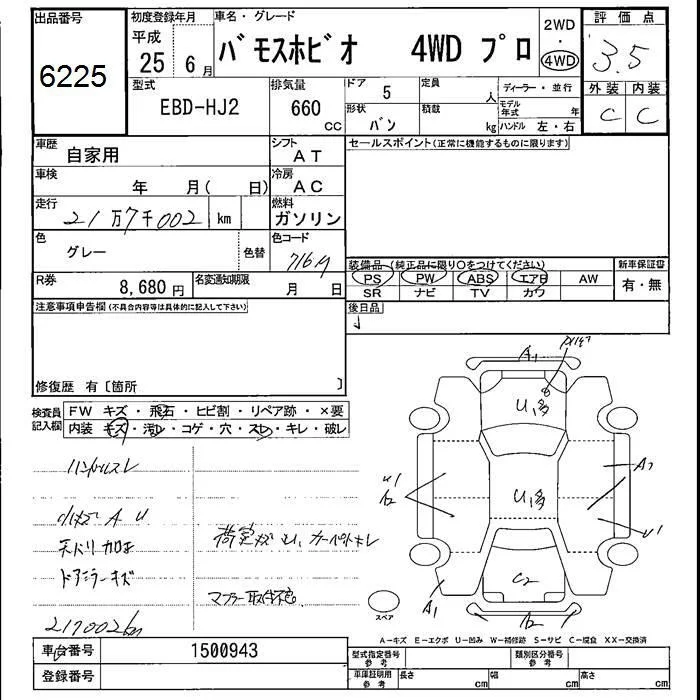 出品番号 初度登録年月 車名・グレード 2WD 評価点
6225 平成 25 6月 バモスホビオ 4WD プロ ・ 4WD 3.5
型式 排気量 ドア 5 定員 人 ディーラー・並行 外装 内装
EBD-HJ2 660 CC 形状 バン 積載 kg モデル年式 年 ハンドル 左・右 C C
車歴 自家用 シフト AT セールスポイント(正常に機能するものに限ります)
車検 年 月( 日) 冷房 AC
走行 21万7千002 km 燃料 ガソリン
色 グレー 色替 色コード
装備品 (純正品に限り○をつけてください) 新車保証書
R券 8,680円 名変通知期限 月 日 PS PW ABS エアB AW 有・無
SR ナビ TV カワ
注意事項申告欄(不具合内容等は具体的に記入して下さい) 後日品
修復歴 有〔箇所 〕
検査員記入欄 FW キズ・飛石・ヒビ割・リペア跡・×要
内装 キズ・汚レ・コゲ・穴・スレ・キレ・破レ
ハンドルスレ
A U
ドアミラーキズ
荷室キズ カーペットキレ
マフラー
217002km
A1
U1多
A2
U1
U1多
C2
A1
A2
スペア
A-キズ E-エクボ U-凹み W-補修跡 S-サビ C-腐食 XX-交換済
車台番号 1500943 型式指定番号 参考 類別区分番号 参考
登録番号 車庫証明用 参考 長さ cm 幅 cm 高さ cm